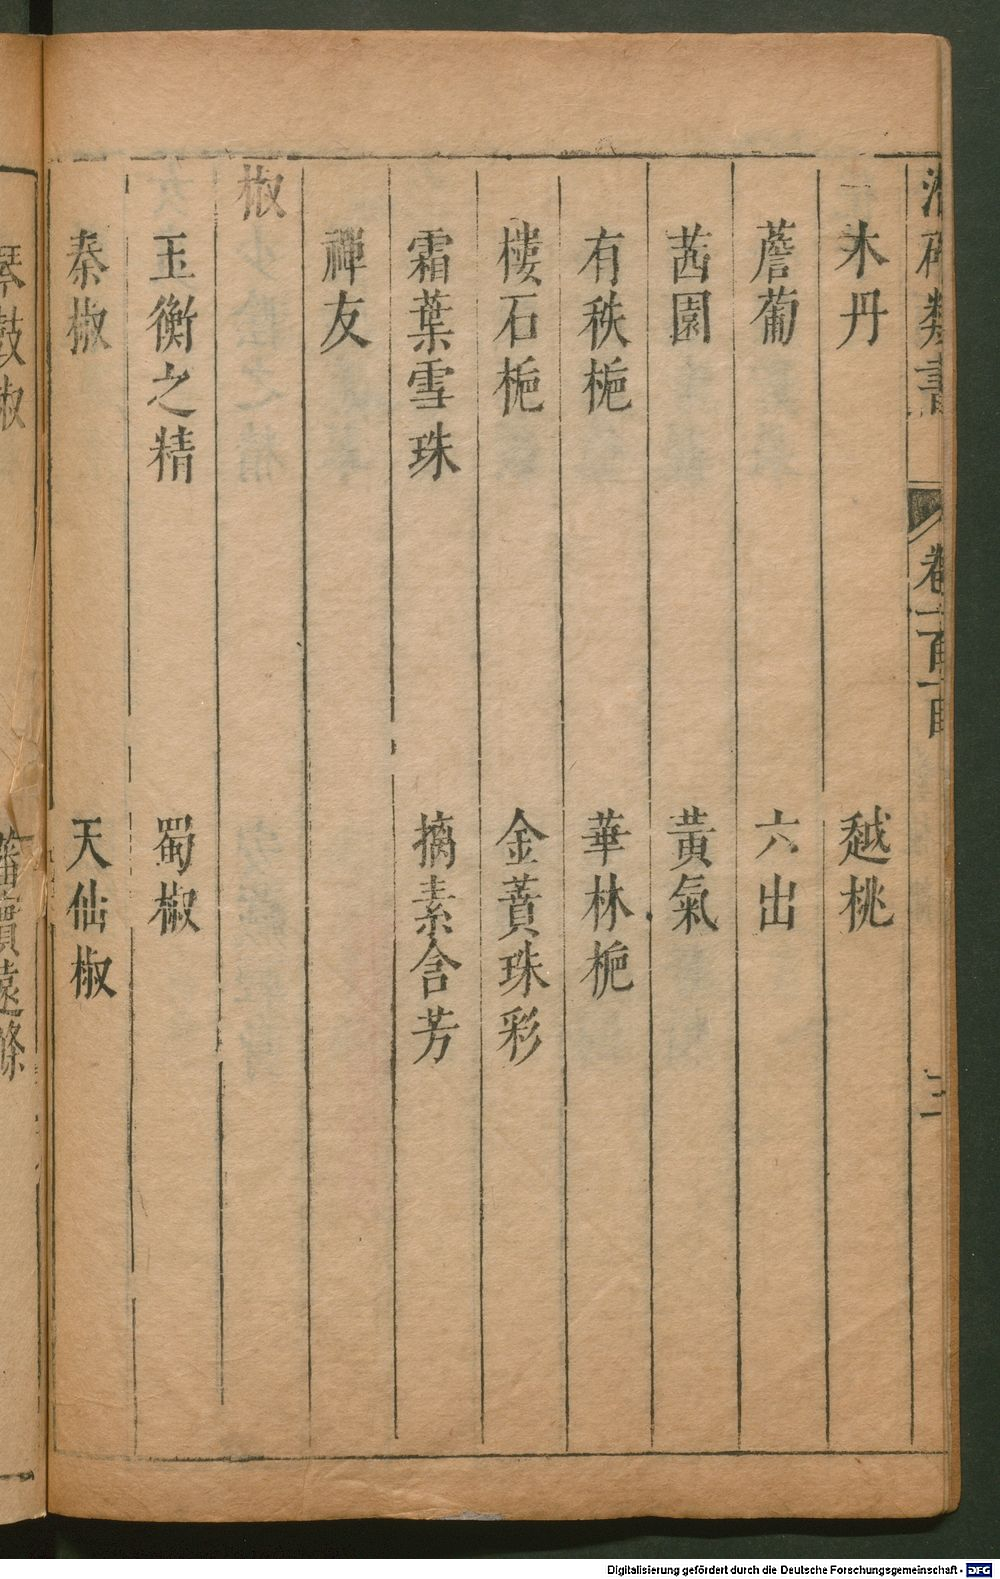 潛確類書 卷一百一 三
木丹 越桃
薝蔔 六出
茜園 黃氣
有秩梔 華林梔
樓石梔 金蕡珠彩
霜葉雪珠 摘素含芳
禪友
椒
玉衡之精 蜀椒
秦椒 天仙椒
琴鼓椒 蕃實遠條
Digitalisierung gefördert durch die Deutsche Forschungsgemeinschaft - DFG